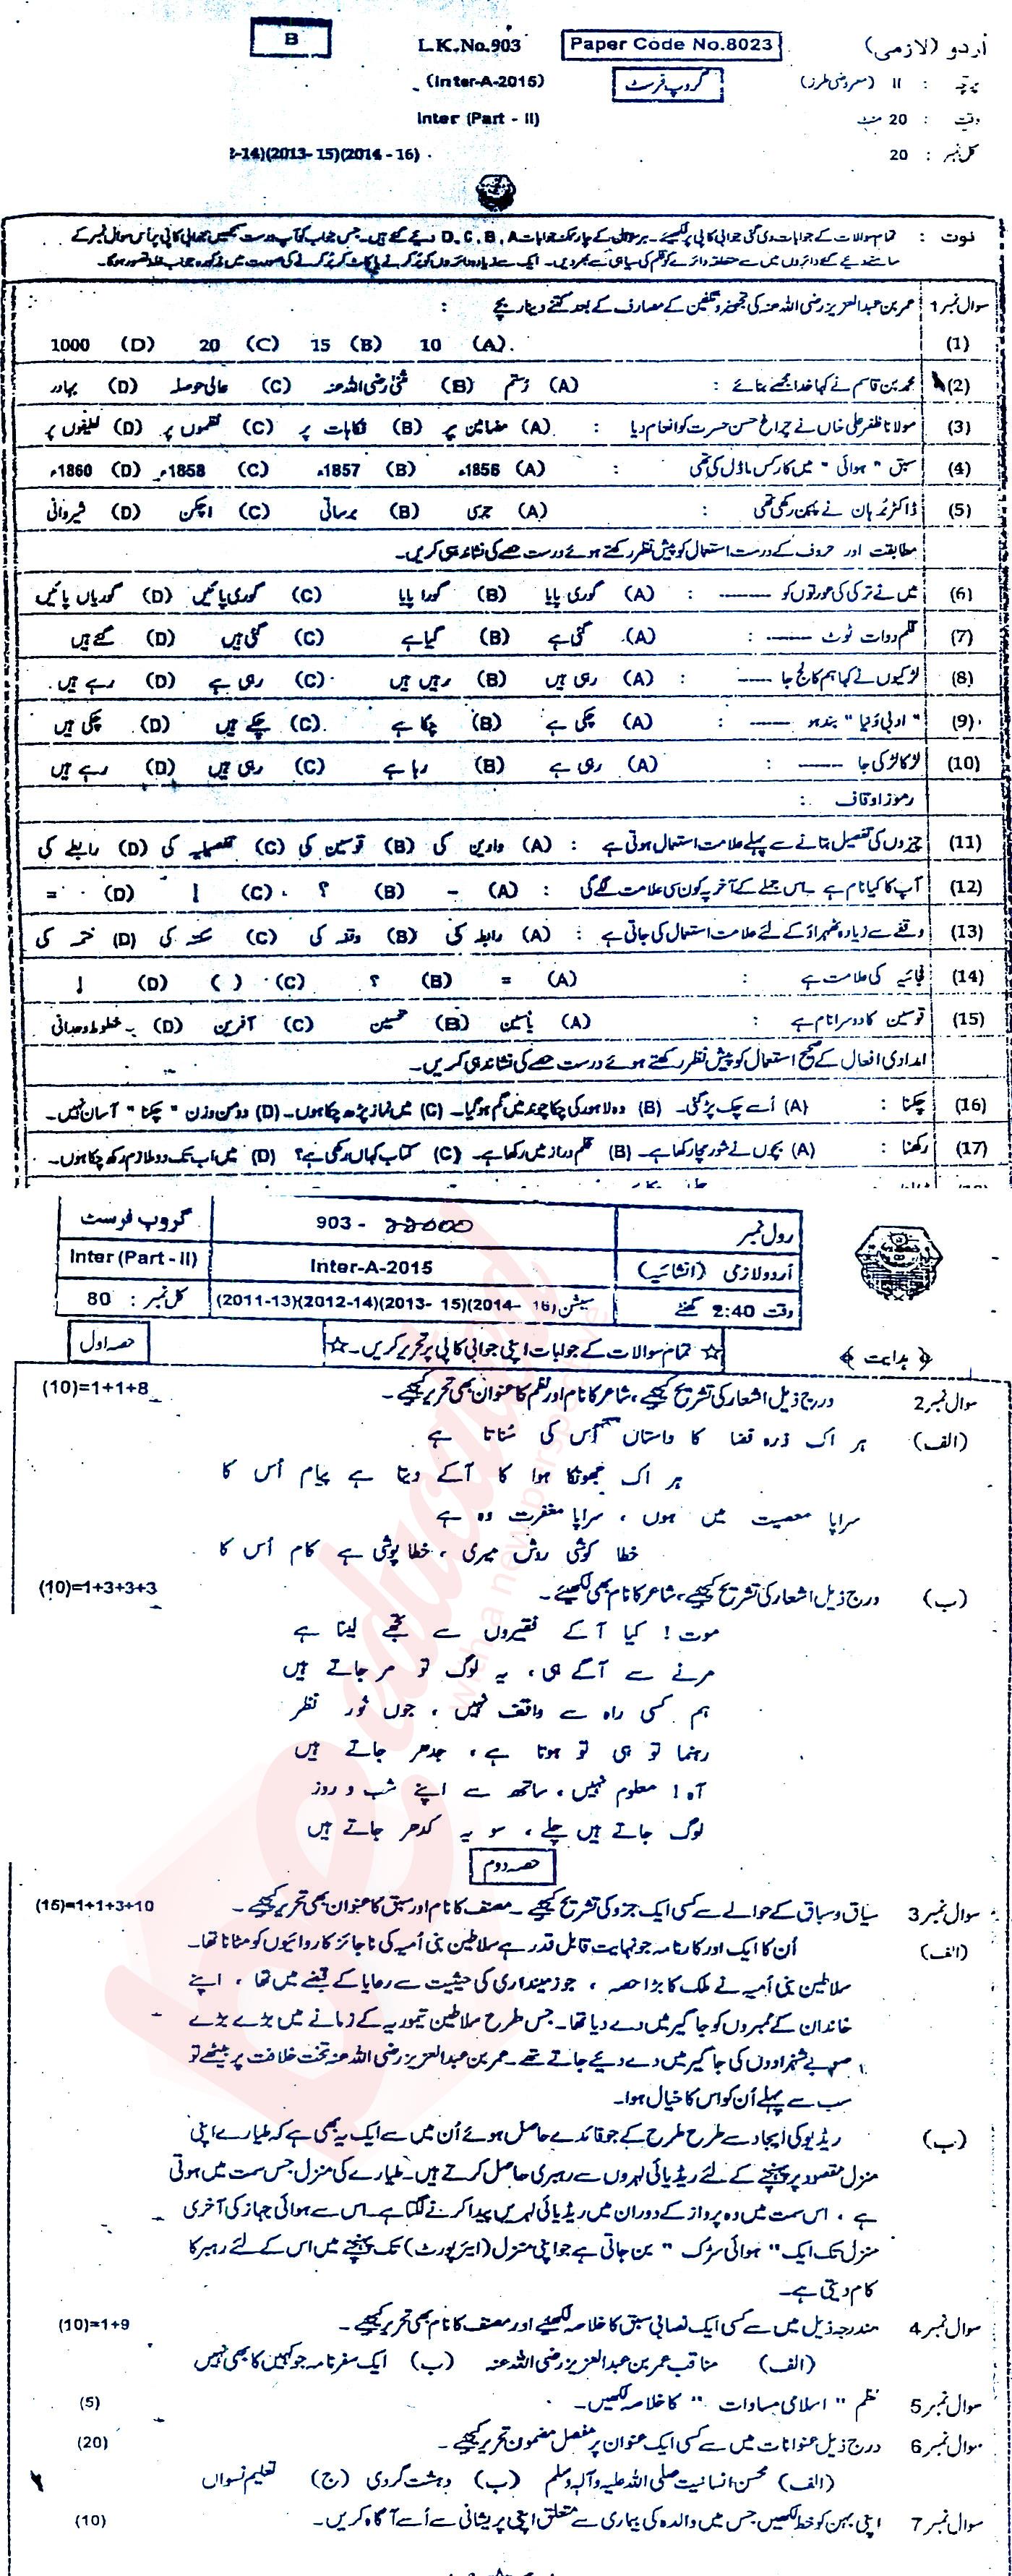 B L.K.No.903 Paper Code No.8023 اردو (لازمی)
(Inter-A-2015) گروپ فرسٹ پرچہ : II (معروضی طرز)
Inter (Part - II) وقت : 20 منٹ
-14)(2013-15)(2014-16) کل نمبر : 20
نوٹ : تمام سوالات کے جوابات دی گئی جوابی کاپی پر لکھیئے۔ ہر سوال کے چار ممکنہ جوابات D، C، B، A دیئے گئے ہیں۔ جس جواب کو آپ درست سمجھیں جوابی کاپی پر اُس سوال نمبر کے
سامنے دیئے گئے دائروں میں سے متعلقہ دائرے کو قلم کی سیاہی سے بھر دیں۔ ایک سے زیادہ دائروں کو پُر کرنے یا کاٹ کر پُر کرنے کی صورت میں مذکورہ جواب غلط تصور ہو گا۔
سوال نمبر 1 عمر بن عبدالعزیز رضی اللہ عنہ کی تجہیز و تکفین کے مصارف کے بعد کتنے دینار بچے :
(1) (A) 10 (B) 15 (C) 20 (D) 1000
(2) محمد بن قاسم نے کہا خدا مجھے بنائے : (A) رستم (B) مثنیٰ رضی اللہ عنہ (C) عالی حوصلہ (D) بہادر
(3) مولانا ظفر علی خاں نے چراغ حسن حسرت کو انعام دیا : (A) مضامین پر (B) فکاہات پر (C) نظموں پر (D) لطیفوں پر
(4) سبق " ہوائی " میں کار کس ماڈل کی تھی : (A) 1856ء (B) 1857ء (C) 1858ء (D) 1860ء
(5) ڈاکٹر برہان نے پہن رکھی تھی : (A) جرسی (B) برساتی (C) اچکن (D) شیروانی
مطابقت اور حروف کے درست استعمال کو پیش نظر رکھتے ہوئے درست حصے کی نشاندہی کریں۔
(6) میں نے ترکی کی عورتوں کو ——— : (A) گوری پایا (B) گورا پایا (C) گوری پائیں (D) گوریاں پائیں
(7) قلم دوات ٹوٹ ——— : (A) گئی ہے (B) گیا ہے (C) گئی ہیں (D) گئے ہیں
(8) لڑکیوں نے کہا ہم کالج جا ——— : (A) رہی ہیں (B) رہیں ہیں (C) رہی ہے (D) رہے ہیں
(9) " ادبی دنیا " بند ہو ——— : (A) چکی ہے (B) چکا ہے (C) چکے ہیں (D) چکی ہیں
(10) لڑکا لڑکی جا ——— : (A) رہی ہے (B) رہا ہے (C) رہی ہیں (D) رہے ہیں
رموز اوقاف :
(11) چیزوں کی تفصیل بتانے سے پہلے علامت استعمال ہوتی ہے : (A) واوین کی (B) قوسین کی (C) تفصیلیہ کی (D) رابطے کی
(12) آپ کا کیا نام ہے ۔اس جملے کے آخر پہ کون سی علامت لگے گی : (A) - (B) ؟ (C) ! (D) =
(13) وقفے سے زیادہ ٹھہراؤ کے لئے علامت استعمال کی جاتی ہے : (A) رابطہ کی (B) وقفہ کی (C) سکتہ کی (D) ختمہ کی
(14) فجائیہ کی علامت ہے : (A) = (B) ؟ (C) ( ) (D) !
(15) قوسین کا دوسرا نام ہے : (A) یٰسین (B) تحسین (C) آفرین (D) خطوط وحدانی
امدادی افعال کے صحیح استعمال کو پیش نظر رکھتے ہوئے درست حصے کی نشاندہی کریں۔
(16) چکنا : (A) اُسے چک پڑ گئی۔ (B) وہ لاہور کی چکا چوند میں گم ہو گیا۔ (C) میں نماز پڑھ چکا ہوں۔ (D) دو من وزن " چکنا " آسان نہیں۔
(17) رکھنا : (A) بچوں نے شور مچا رکھا ہے۔ (B) قلم دراز میں رکھا ہے۔ (C) کتاب کہاں رکھی ہے؟ (D) میں اب تک دو ملازم رکھ چکا ہوں۔
رول نمبر 903 - گروپ فرسٹ
اُردو لازمی (انشائیہ) Inter-A-2015 Inter (Part - II)
وقت 2:40 گھنٹے سیشن (2011-13)(2012-14)(2013-15)(2014-16) کل نمبر : 80
﴿ ہدایت ﴾ ☆ تمام سوالات کے جوابات اپنی جوابی کاپی پر تحریر کریں۔ ☆ حصہ اول
سوال نمبر 2 درج ذیل اشعار کی تشریح کیجیے ، شاعر کا نام اور نظم کا عنوان بھی تحریر کیجیے۔ (10)=1+1+8
(الف) ہر اک ذرہ فضا کا داستاں اُس کی سُناتا ہے
ہر اک جھونکا ہوا کا آکے دیتا ہے پیام اُس کا
سراپا معصیت میں ہوں ، سراپا مغفرت وہ ہے
خطا کوشی روش میری ، خطا پوشی ہے کام اُس کا
(ب) درج ذیل اشعار کی تشریح کیجیے ، شاعر کا نام بھی لکھیئے۔ (10)=1+3+3+3
موت ! کیا آ کے فقیروں سے تجھے لینا ہے
مرنے سے آگے ہی ، یہ لوگ تو مر جاتے ہیں
ہم کسی راہ سے واقف نہیں ، جوں نُور نظر
رہنما تو ہی تو ہوتا ہے ، جدھر جاتے ہیں
آہ ! معلوم نہیں ، ساتھ سے اپنے شب و روز
لوگ جاتے ہیں چلے ، سو یہ کدھر جاتے ہیں
حصہ دوم
سوال نمبر 3 سیاق و سباق کے حوالے سے کسی ایک جزو کی تشریح کیجیے ۔ مصنف کا نام اور سبق کا عنوان بھی تحریر کیجیے۔ (15)=1+1+3+10
(الف) اُن کا ایک اور کارنامہ جو نہایت قابل قدر ہے سلاطین بنی اُمیہ کی ناجائز کاروائیوں کو مٹانا تھا۔
سلاطین بنی اُمیہ نے ملک کا بڑا حصہ ، جو زمینداری کی حیثیت سے رعایا کے قبضے میں تھا ، اپنے
خاندان کے ممبروں کو جاگیر میں دے دیا تھا۔ جس طرح سلاطین تیموریہ کے زمانے میں بڑے بڑے
صوبے شہزادوں کی جاگیر میں دے دیئے جاتے تھے ۔ عمر بن عبدالعزیز رضی اللہ عنہ تخت خلافت پر بیٹھے تو
سب سے پہلے اُن کو اس کا خیال ہوا۔
(ب) ریڈیو کی ایجاد سے طرح طرح کے جو فائدے حاصل ہوئے اُن میں سے ایک یہ بھی ہے کہ طیارے اپنی
منزل مقصود پر پہنچنے کے لئے ریڈیائی لہروں سے رہبری حاصل کرتے ہیں۔ طیارے کی منزل جس سمت میں ہوتی
ہے ، اس سمت میں وہ پرواز کے دوران میں ریڈیائی لہریں پیدا کرنے لگتا ہے۔ اس سے ہوائی جہاز کی آخری
منزل تک ایک " ہوائی سڑک " بن جاتی ہے جو اپنی منزل (ایئر پورٹ) تک پہنچنے میں اس کے لئے رہبر کا
کام دیتی ہے۔
سوال نمبر 4 مندرجہ ذیل میں سے کسی ایک نصابی سبق کا خلاصہ لکھیئے اور مصنف کا نام بھی تحریر کیجیے۔ (10)=1+9
(الف) مناقب عمر بن عبدالعزیز رضی اللہ عنہ (ب) ایک سفر نامہ جو کہیں کا بھی نہیں
سوال نمبر 5 نظم " اسلامی مساوات " کا خلاصہ لکھیں۔ (5)
سوال نمبر 6 درج ذیل عنوانات میں سے کسی ایک عنوان پر مفصل مضمون تحریر کیجیے۔ (20)
(الف) محسن انسانیت صلی اللہ علیہ وآلہ وسلم (ب) دہشت گردی (ج) تعلیم نسواں
سوال نمبر 7 اپنی بہن کو خط لکھیں جس میں والدہ کی بیماری سے متعلق اپنی پریشانی سے اُسے آگاہ کریں۔ (10)